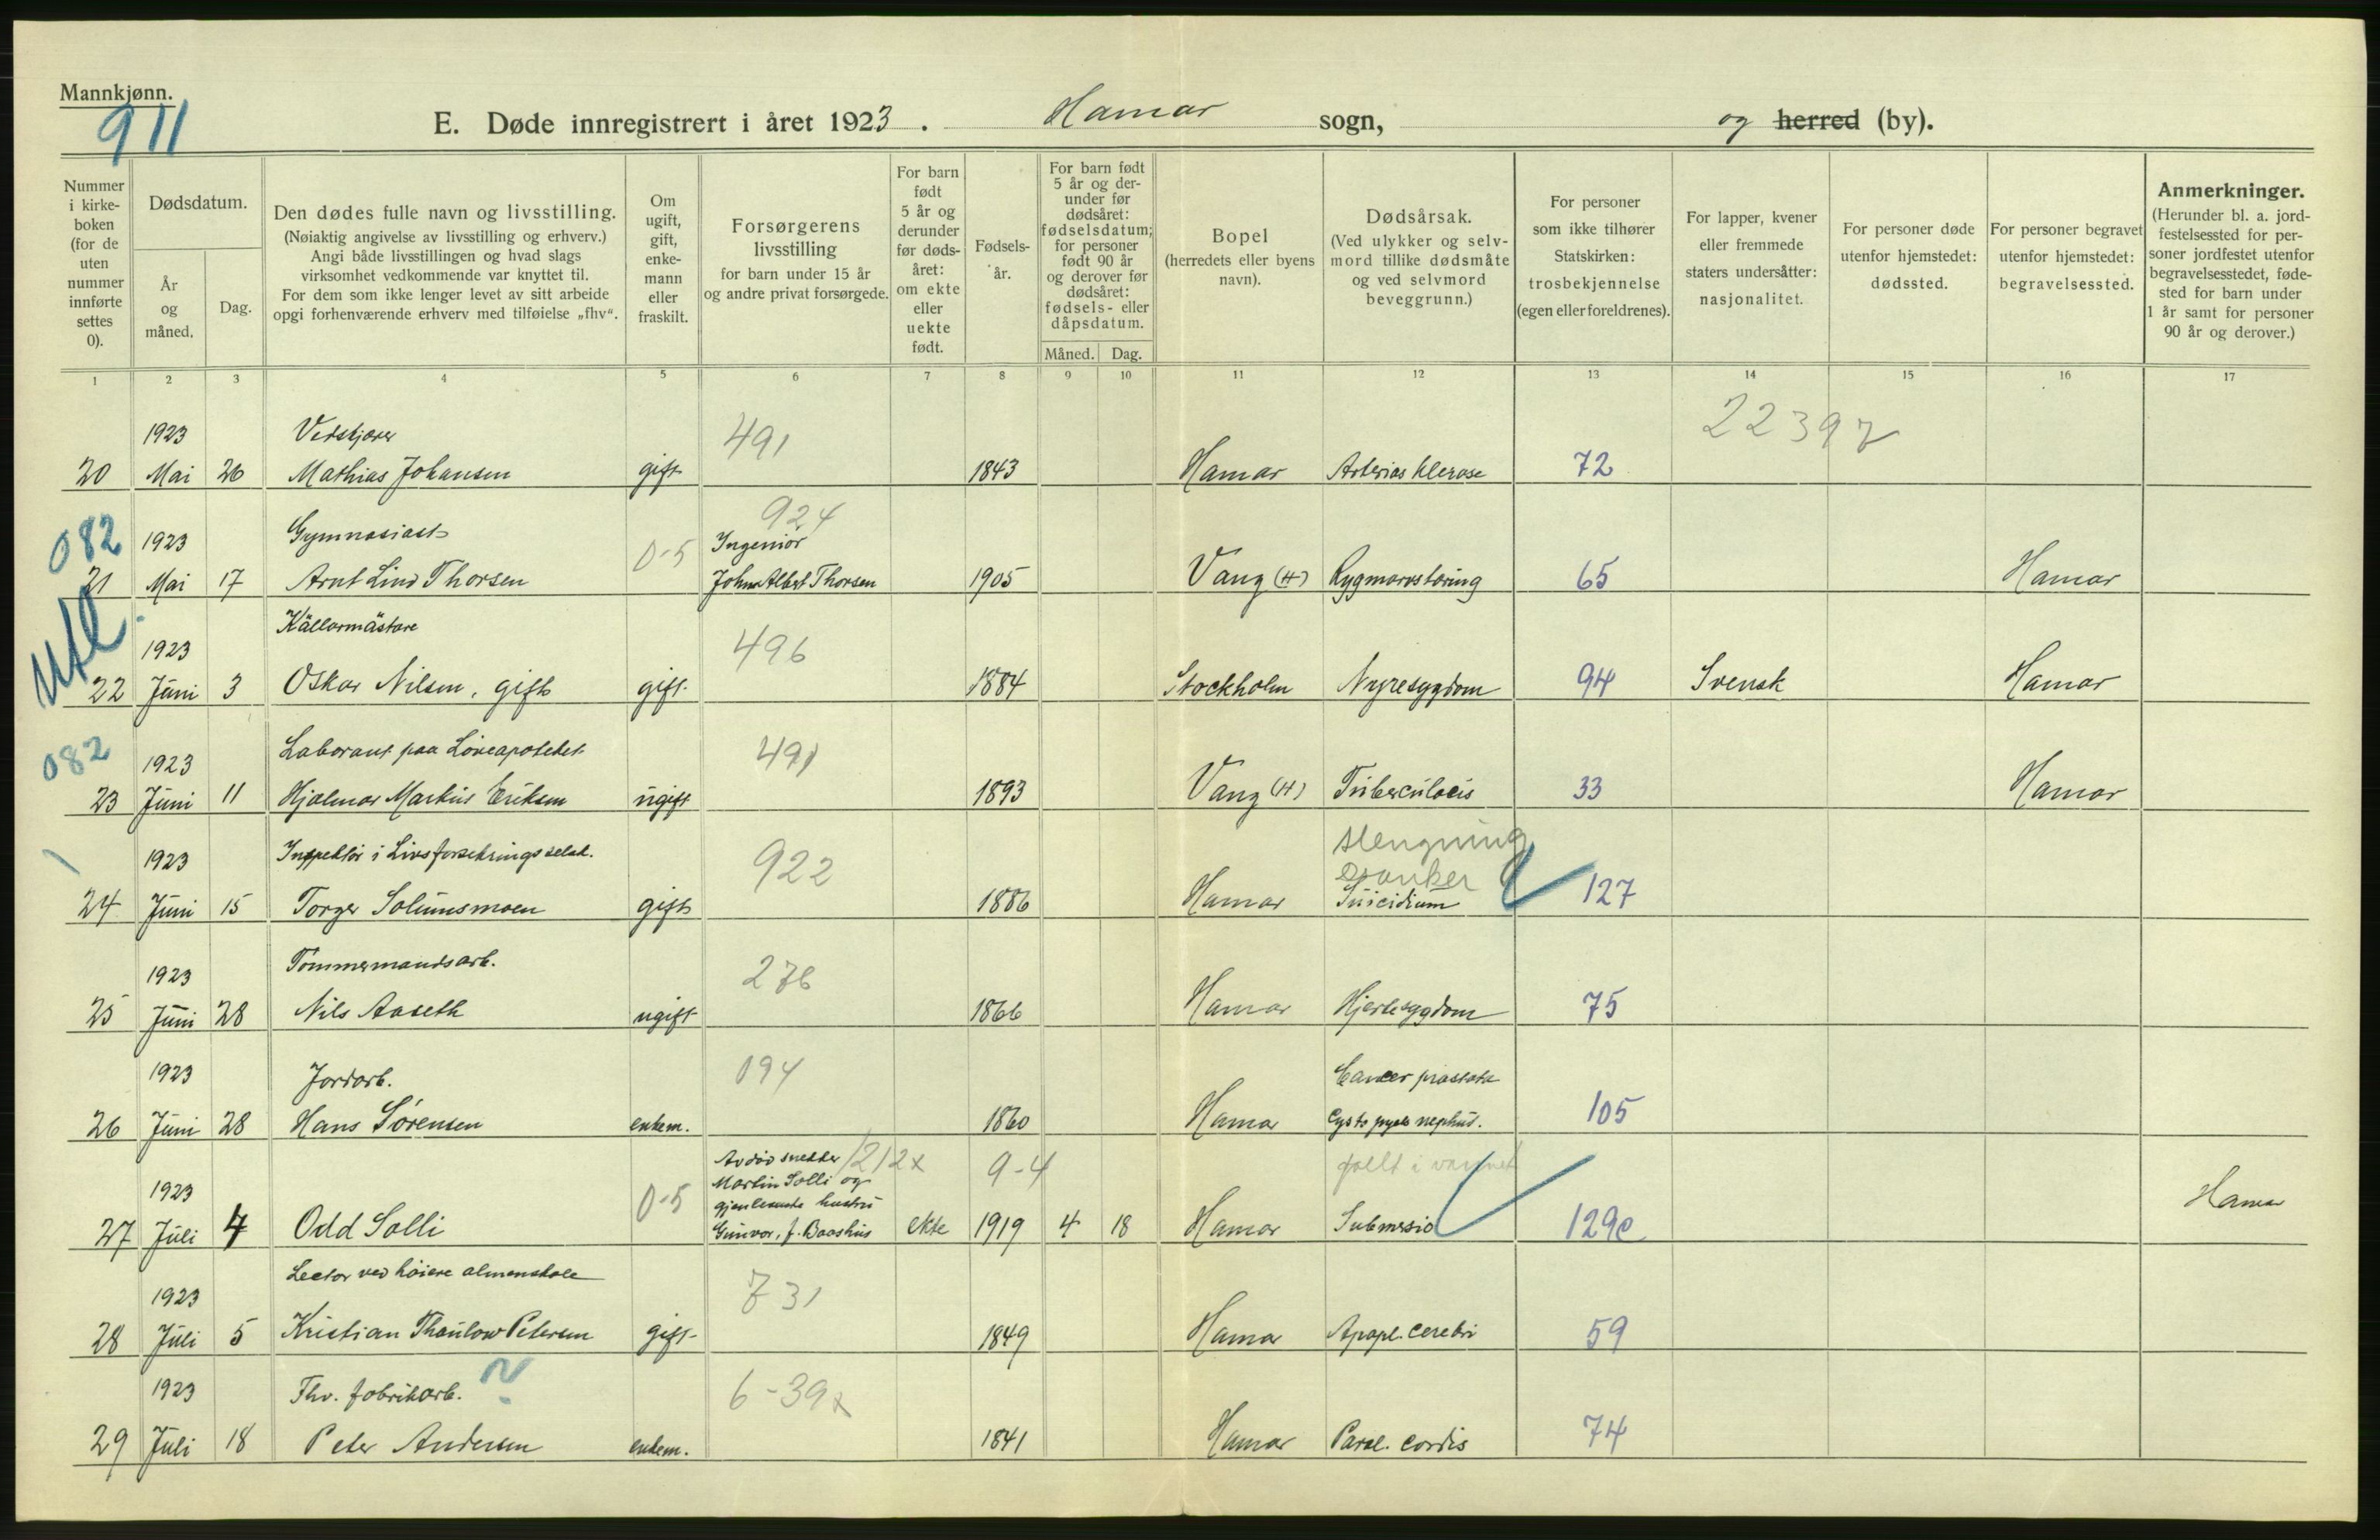 Mannkjønn.
911
E. Døde innregistrert i året 1923. Hamar sogn, og herred (by).
Nummer i kirke-boken (for de uten nummer innførte settes 0).
Dødsdatum.
År og måned.
Dag.
Den dødes fulle navn og livsstilling.
(Nøiaktig angivelse av livsstilling og erhverv.)
Angi både livsstillingen og hvad slags
virksomhet vedkommende var knyttet til.
For dem som ikke lenger levet av sitt arbeide
opgi forhenværende erhverv med tilføielse „fhv“.
Om ugift, gift, enke-mann eller fraskilt.
Forsørgerens livsstilling
for barn under 15 år
og andre privat forsørgede.
For barn født 5 år og derunder før døds-året: om ekte eller uekte født.
Fødsels-år.
For barn født 5 år og der-under før dødsåret: fødselsdatum; for personer født 90 år og derover før dødsåret: fødsels- eller dåpsdatum.
Måned. Dag.
Bopel
(herredets eller byens navn).
Dødsårsak.
(Ved ulykker og selv-mord tillike dødsmåte og ved selvmord beveggrunn.)
For personer som ikke tilhører Statskirken: trosbekjennelse (egen eller foreldrenes).
For lapper, kvener eller fremmede staters undersåtter: nasjonalitet.
For personer døde utenfor hjemstedet: dødssted.
For personer begravet utenfor hjemstedet: begravelsessted.
Anmerkninger.
(Herunder bl. a. jord-festelsessted for per-soner jordfestet utenfor begravelsesstedet, føde-sted for barn under 1 år samt for personer 90 år og derover.)
1 2 3 4 5 6 7 8 9 10 11 12 13 14 15 16 17
1923 Vedskjærer 491
20 Mai 26 Mathias Johansen gift 1843 Hamar Arterias klerose 72
082 1923 Gymnasiast 0-5 924 Ingeniør
21 Mai 17 Arnt Lind Thorsen Johan Albert Thorsen 1905 Vang (H) Rygmarvstæring 65 Hamar
Utl. 1923 Källarmästare 496
22 Juni 3 Oskar Nilsen, gift gift 1884 Stockholm Nyresygdom 94 Svensk Hamar
082 1923 Laborant paa Løveapoteket 491
23 Juni 11 Hjalmar Markus Eriksen ugift 1893 Vang (H) Tuberculosis 33 Hamar
1923 Inspektør i Livsforsikringsselsk. 922 Hengning
24 Juni 15 Torger Solumsmoen gift 1886 Hamar Suicidium 127
1923 Tømmermandsarb. 276
25 Juni 28 Nils Aaseth ugift 1866 Hamar Hjertesygdom 75
1923 Jordarb. 094 Cancer prostata
26 Juni 28 Hans Sørensen enkem. 1860 Hamar 105
1923 0-5 Avdød snekker 212x 9-4 fallt i vannet
Martin Solli og
gjenlevende hustru Hamar
27 Juli 4 Odd Solli Gunvor, f. Baashus ekte 1919 4 18 Hamar Submersio 129c
1923 Lector ved høiere almenskole 731
28 Juli 5 Kristian Thaulow Petersen gift 1849 Hamar Apopl. cerebri 59
1923 Fhv. fabrikarb. ? 6-39x
29 Juli 18 Peter Andersen enkem. 1841 Hamar Paral. cordis 74